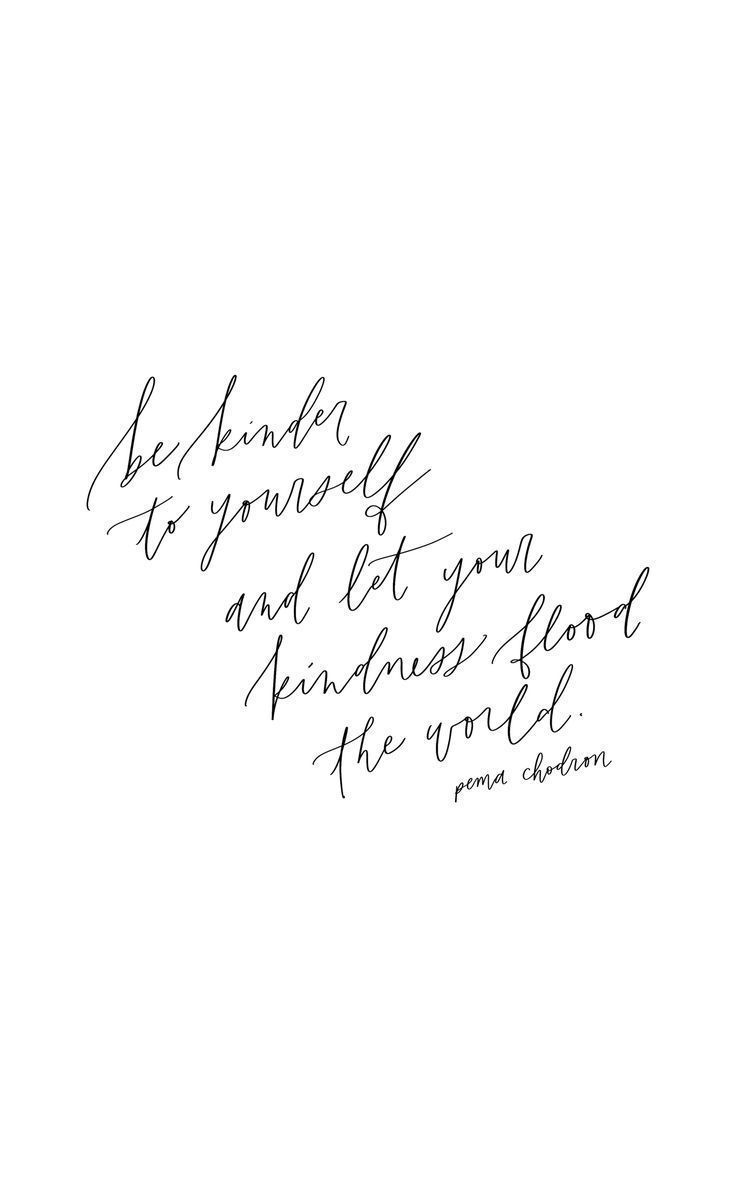 be kinder
to yourself
and let your
kindness flood
the world.
pema chodron